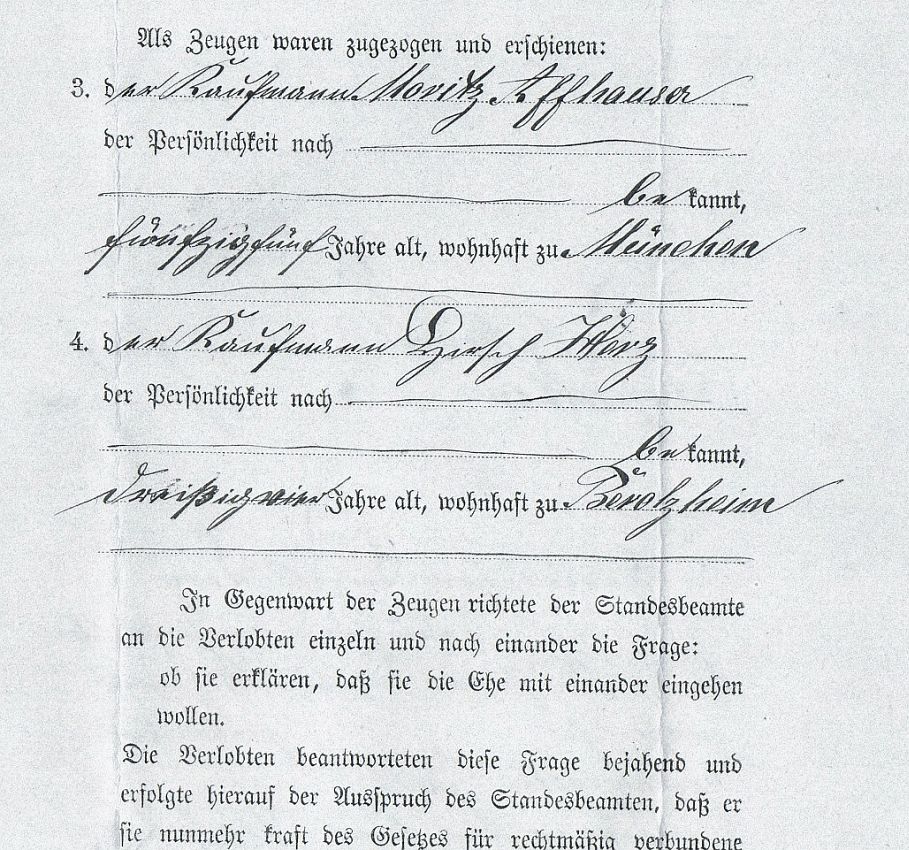 Als Zeugen waren zugezogen und erschienen:
3. der Kaufmann Moritz Affhauser
der Persönlichkeit nach
be kannt,
fünfzigfünf Jahre alt, wohnhaft zu München
4. der Kaufmann Hirsch
der Persönlichkeit nach
be kannt,
dreißigvier Jahre alt, wohnhaft zu Berolzheim
In Gegenwart der Zeugen richtete der Standesbeamte
an die Verlobten einzeln und nach einander die Frage:
ob sie erklären, daß sie die Ehe mit einander eingehen
wollen.
Die Verlobten beantworteten diese Frage bejahend und
erfolgte hierauf der Ausspruch des Standesbeamten, daß er
sie nunmehr kraft des Gesetzes für rechtmäßig verbundene